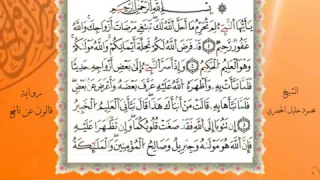 بِسْمِ اللَّهِ الرَّحْمَٰنِ الرَّحِيمِ
يَٰأَيُّهَا النَّبِيءُ لِمَ تُحَرِّمُ مَا أَحَلَّ اللَّهُ لَكَ تَبْتَغِي مَرْضَاتَ أَزْوَٰجِكَ وَاللَّهُ
غَفُورٌ رَّحِيمٌ ١ قَدْ فَرَضَ اللَّهُ لَكُمْ تَحِلَّةَ أَيْمَٰنِكُمْ وَاللَّهُ مَوْلَيٰكُمْ
وَهْوَ الْعَلِيمُ الْحَكِيمُ ٢ وَإِذْ أَسَرَّ النَّبِيءُ إِلَىٰ بَعْضِ أَزْوَٰجِهِ حَدِيثًا
فَلَمَّا نَبَّأَتْ بِهِ وَأَظْهَرَهُ اللَّهُ عَلَيْهِ عَرَّفَ بَعْضَهُ وَأَعْرَضَ عَنْ بَعْضٍ
فَلَمَّا نَبَّأَهَا بِهِ قَالَتْ مَنْ أَنْبَأَكَ هَٰذَا قَالَ نَبَّأَنِيَ الْعَلِيمُ الْخَبِيرُ
٣ إِن تَتُوبَا إِلَى اللَّهِ فَقَدْ صَغَتْ قُلُوبُكُمَا وَإِن تَظَّٰهَرَا عَلَيْهِ
فَإِنَّ اللَّهَ هُوَ مَوْلَيٰهُ وَجِبْرِيلُ وَصَٰلِحُ الْمُؤْمِنِينَ وَالْمَلَٰئِكَةُ
الشيخ
محمود خليل الحصري
رواية
قالون عن نافع